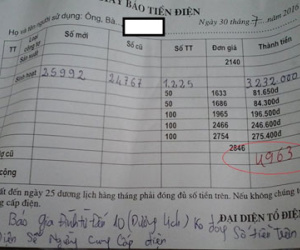 GIẤY BÁO TIỀN ĐIỆN
Ngày 30 tháng 7 năm 2016
Họ và tên người sử dụng: Ông, Bà
TT Loại công tơ Số mới Số cũ Số TT Đơn giá Thành tiền
2140
Sinh hoạt 25992 24767 1.225 3232.000
50 1633 81.650đ
50 1686 84.300đ
100 1965 196.500đ
100 2466 246.600đ
100 2754 275.400đ
2846 4963
cũ
cộng
đến ngày 25 dương lịch hàng tháng phải đóng đủ số tiền trên. Nếu không chúng
cấp điện.
ĐẠI DIỆN TỔ ĐIỆN
Báo gia Đình 10 (Dương lịch) Ko đóng Số tiền Trên
Điện Sẽ Ngừng Cung Cấp điện